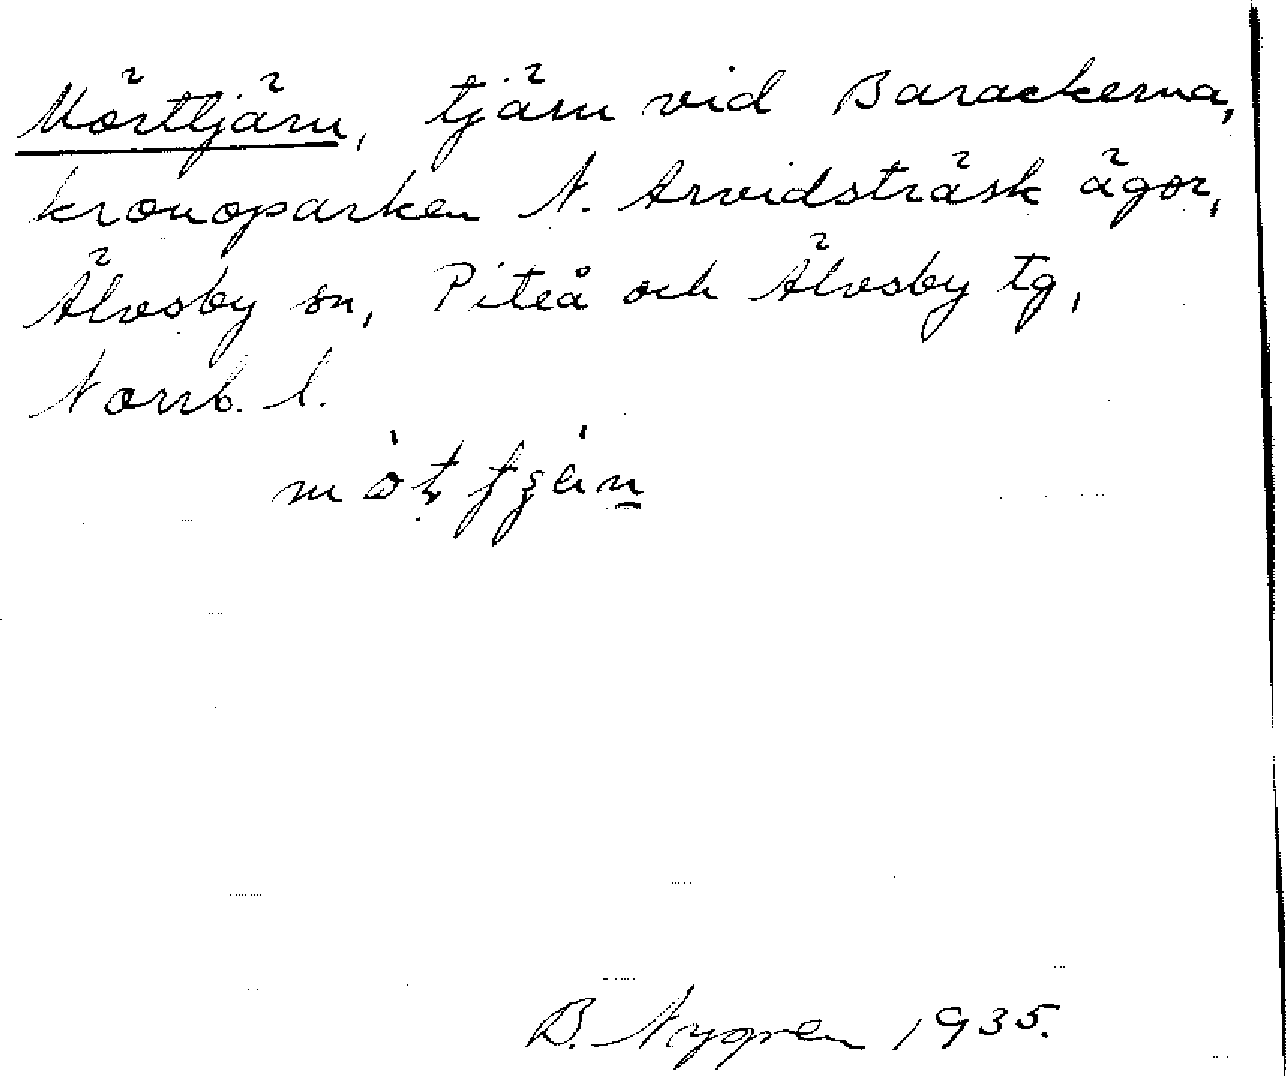 Mörttjärn, tjärn vid Barackerna,
kronoparken N. Arvidsträsk ägor,
Älvsby sn, Piteå och Älvsby tg,
Norrb. l.
B. Nygren 1935.